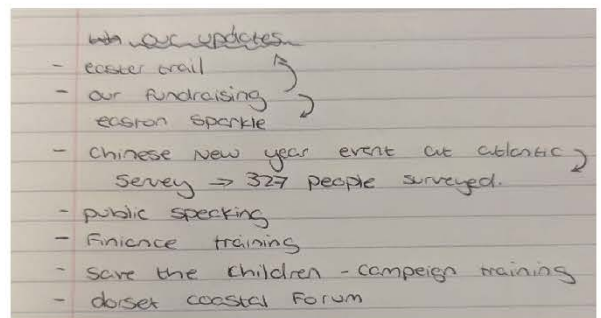 our updates
- easter trail
- our fundraising
easton sparkle
- Chinese New year event at atlantic
Servey ⇒ 327 people surveyed.
- public specking
- Finience training
- Save the Children - campeign training
- dorset coastal Forum